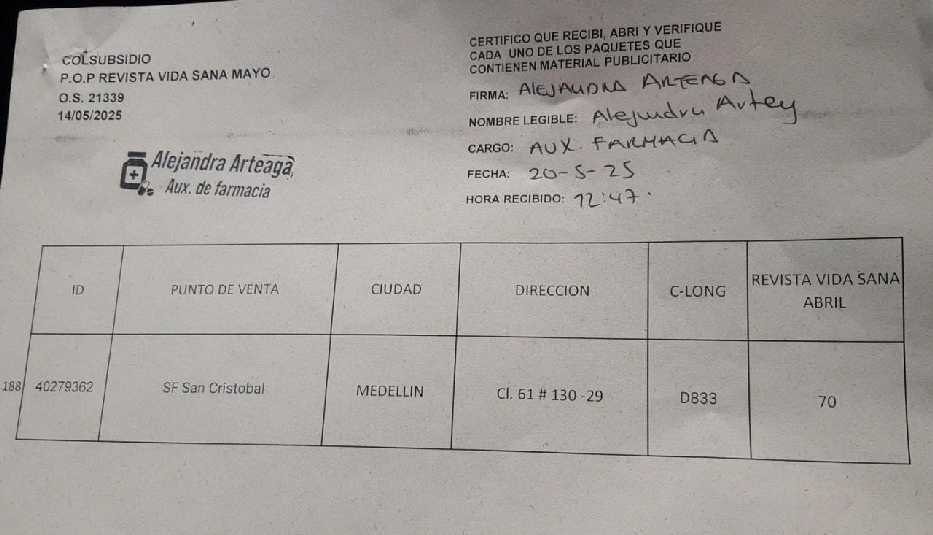 COLSUBSIDIO
P.O.P REVISTA VIDA SANA MAYO
O.S. 21339
14/05/2025
Alejandra Arteaga,
Aux. de farmacia
CERTIFICO QUE RECIBI, ABRI Y VERIFIQUE
CADA UNO DE LOS PAQUETES QUE
CONTIENEN MATERIAL PUBLICITARIO
FIRMA: ALEJANDRA ARTEAGA
NOMBRE LEGIBLE: Alejandra Artey
CARGO: AUX. FARMACIA
FECHA: 20-5-25
HORA RECIBIDO: 12:47.
ID PUNTO DE VENTA CIUDAD DIRECCION C-LONG REVISTA VIDA SANA
ABRIL
188 40279362 SF San Cristobal MEDELLIN Cl. 61 # 130 -29 D833 70